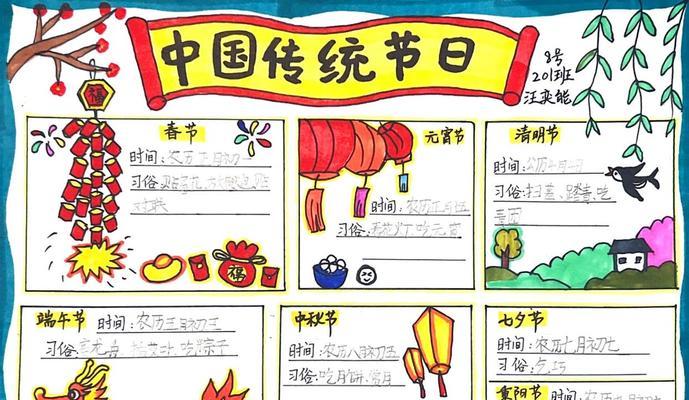 中国传统节日
8号
201班
汪奕能
福
春节
时间:农历正月初一
习俗:贴窗花、放鞭炮、贴
对联
福
元宵节
时间:农历正月
习俗:花灯、吃元宵
清明节
时间:公历
习俗:扫墓、踏青、吃
青团
端午节 时间:农历五月初五
习俗:龙舟、吃粽子
中秋节
时间:农历八月初五
习俗:吃月饼、赏月
七夕节
时间:农历七月初七
习俗:乞巧
重阳节 时间:农历九月初九